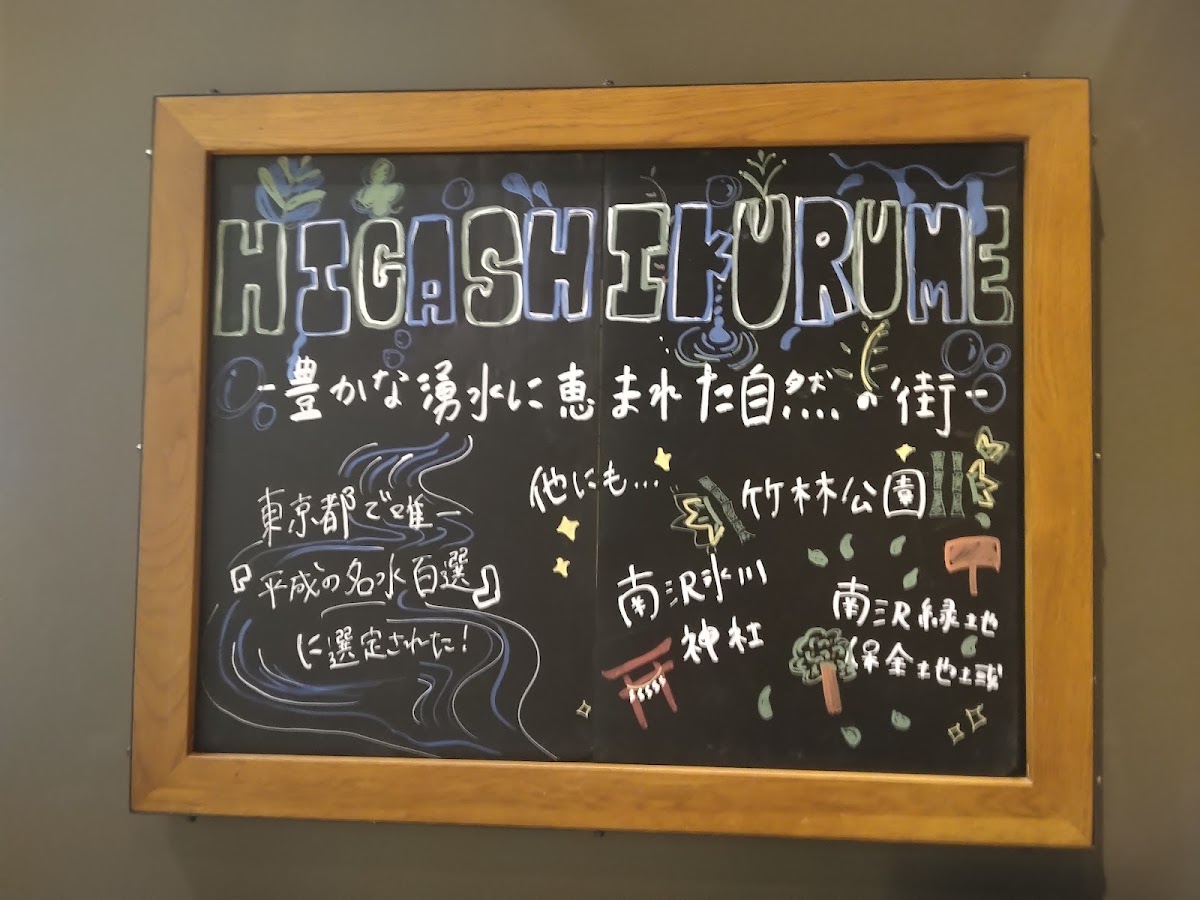 HIGASHIKURUME
-豊かな湧水に恵まれた自然の街-
東京都で唯一
『平成の名水百選』
に選定された!
他にも...
竹林公園
南沢氷川
神社
南沢緑地
保全地域